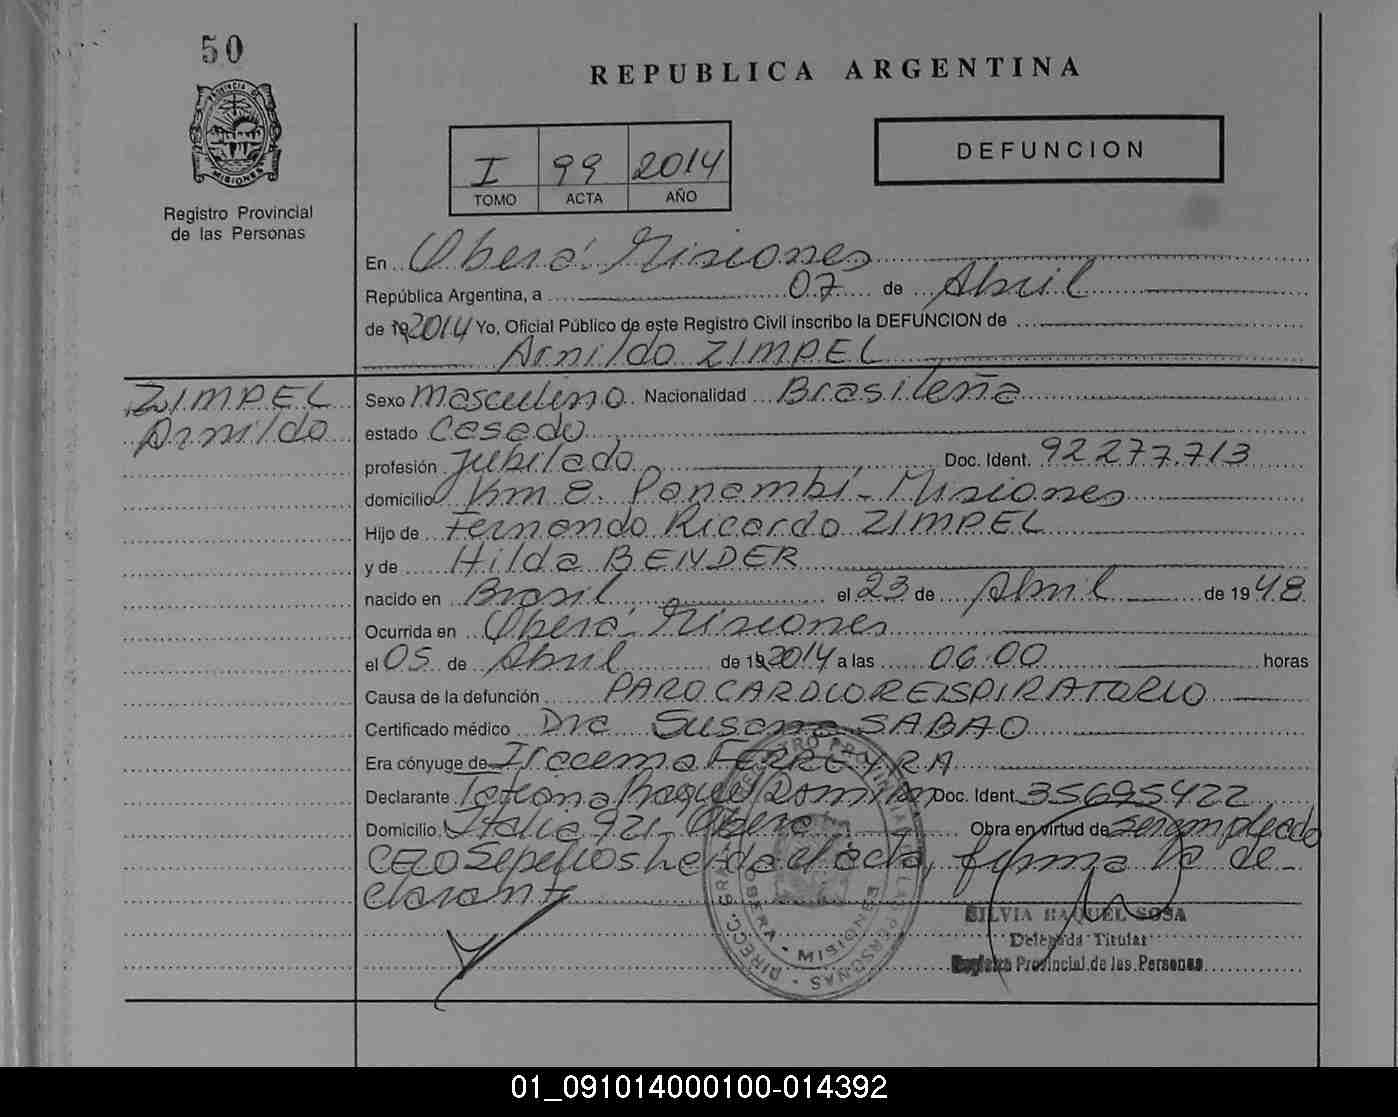 50
REPUBLICA ARGENTINA
PROVINCIA DE
MISIONES
Registro Provincial
de las Personas
I 99 2014
TOMO ACTA AÑO
DEFUNCION
En Oberá Misiones
República Argentina, a 07 de Abril
de 19 2014 Yo, Oficial Público de este Registro Civil inscribo la DEFUNCION de
Arnildo ZIMPEL
ZIMPEL
Arnildo
Sexo masculino Nacionalidad Brasileña
estado Casado
profesión Jubilado Doc. Ident. 92 277.713
domicilio Km 8. Panambí - Misiones
Hijo de Fernando Ricardo ZIMPEL
y de Hilda BENDER
nacido en Brasil el 23 de Abril de 1948
Ocurrida en Oberá - Misiones
el 05 de Abril de 19 2014 a las 06.00 horas
Causa de la defunción PARO CARDIORESPIRATORIO
Certificado médico Dra Susana SABAO
Era cónyuge de Iracema FERREYRA
Declarante Tatiana Raquel Doc. Ident. 35695422
Domicilio Italia 921 - Oberá Obra en virtud de ser empleado
CELO Sepelios leída el acta, firma la de-
clarante
DIRECC. GRAL. REGISTRO PROVINCIAL DE LAS PERSONAS
OBERA - MISIONES
SILVIA RAQUEL SOSA
Delegada Titular
Registro Provincial de las Personas
01_091014000100-014392